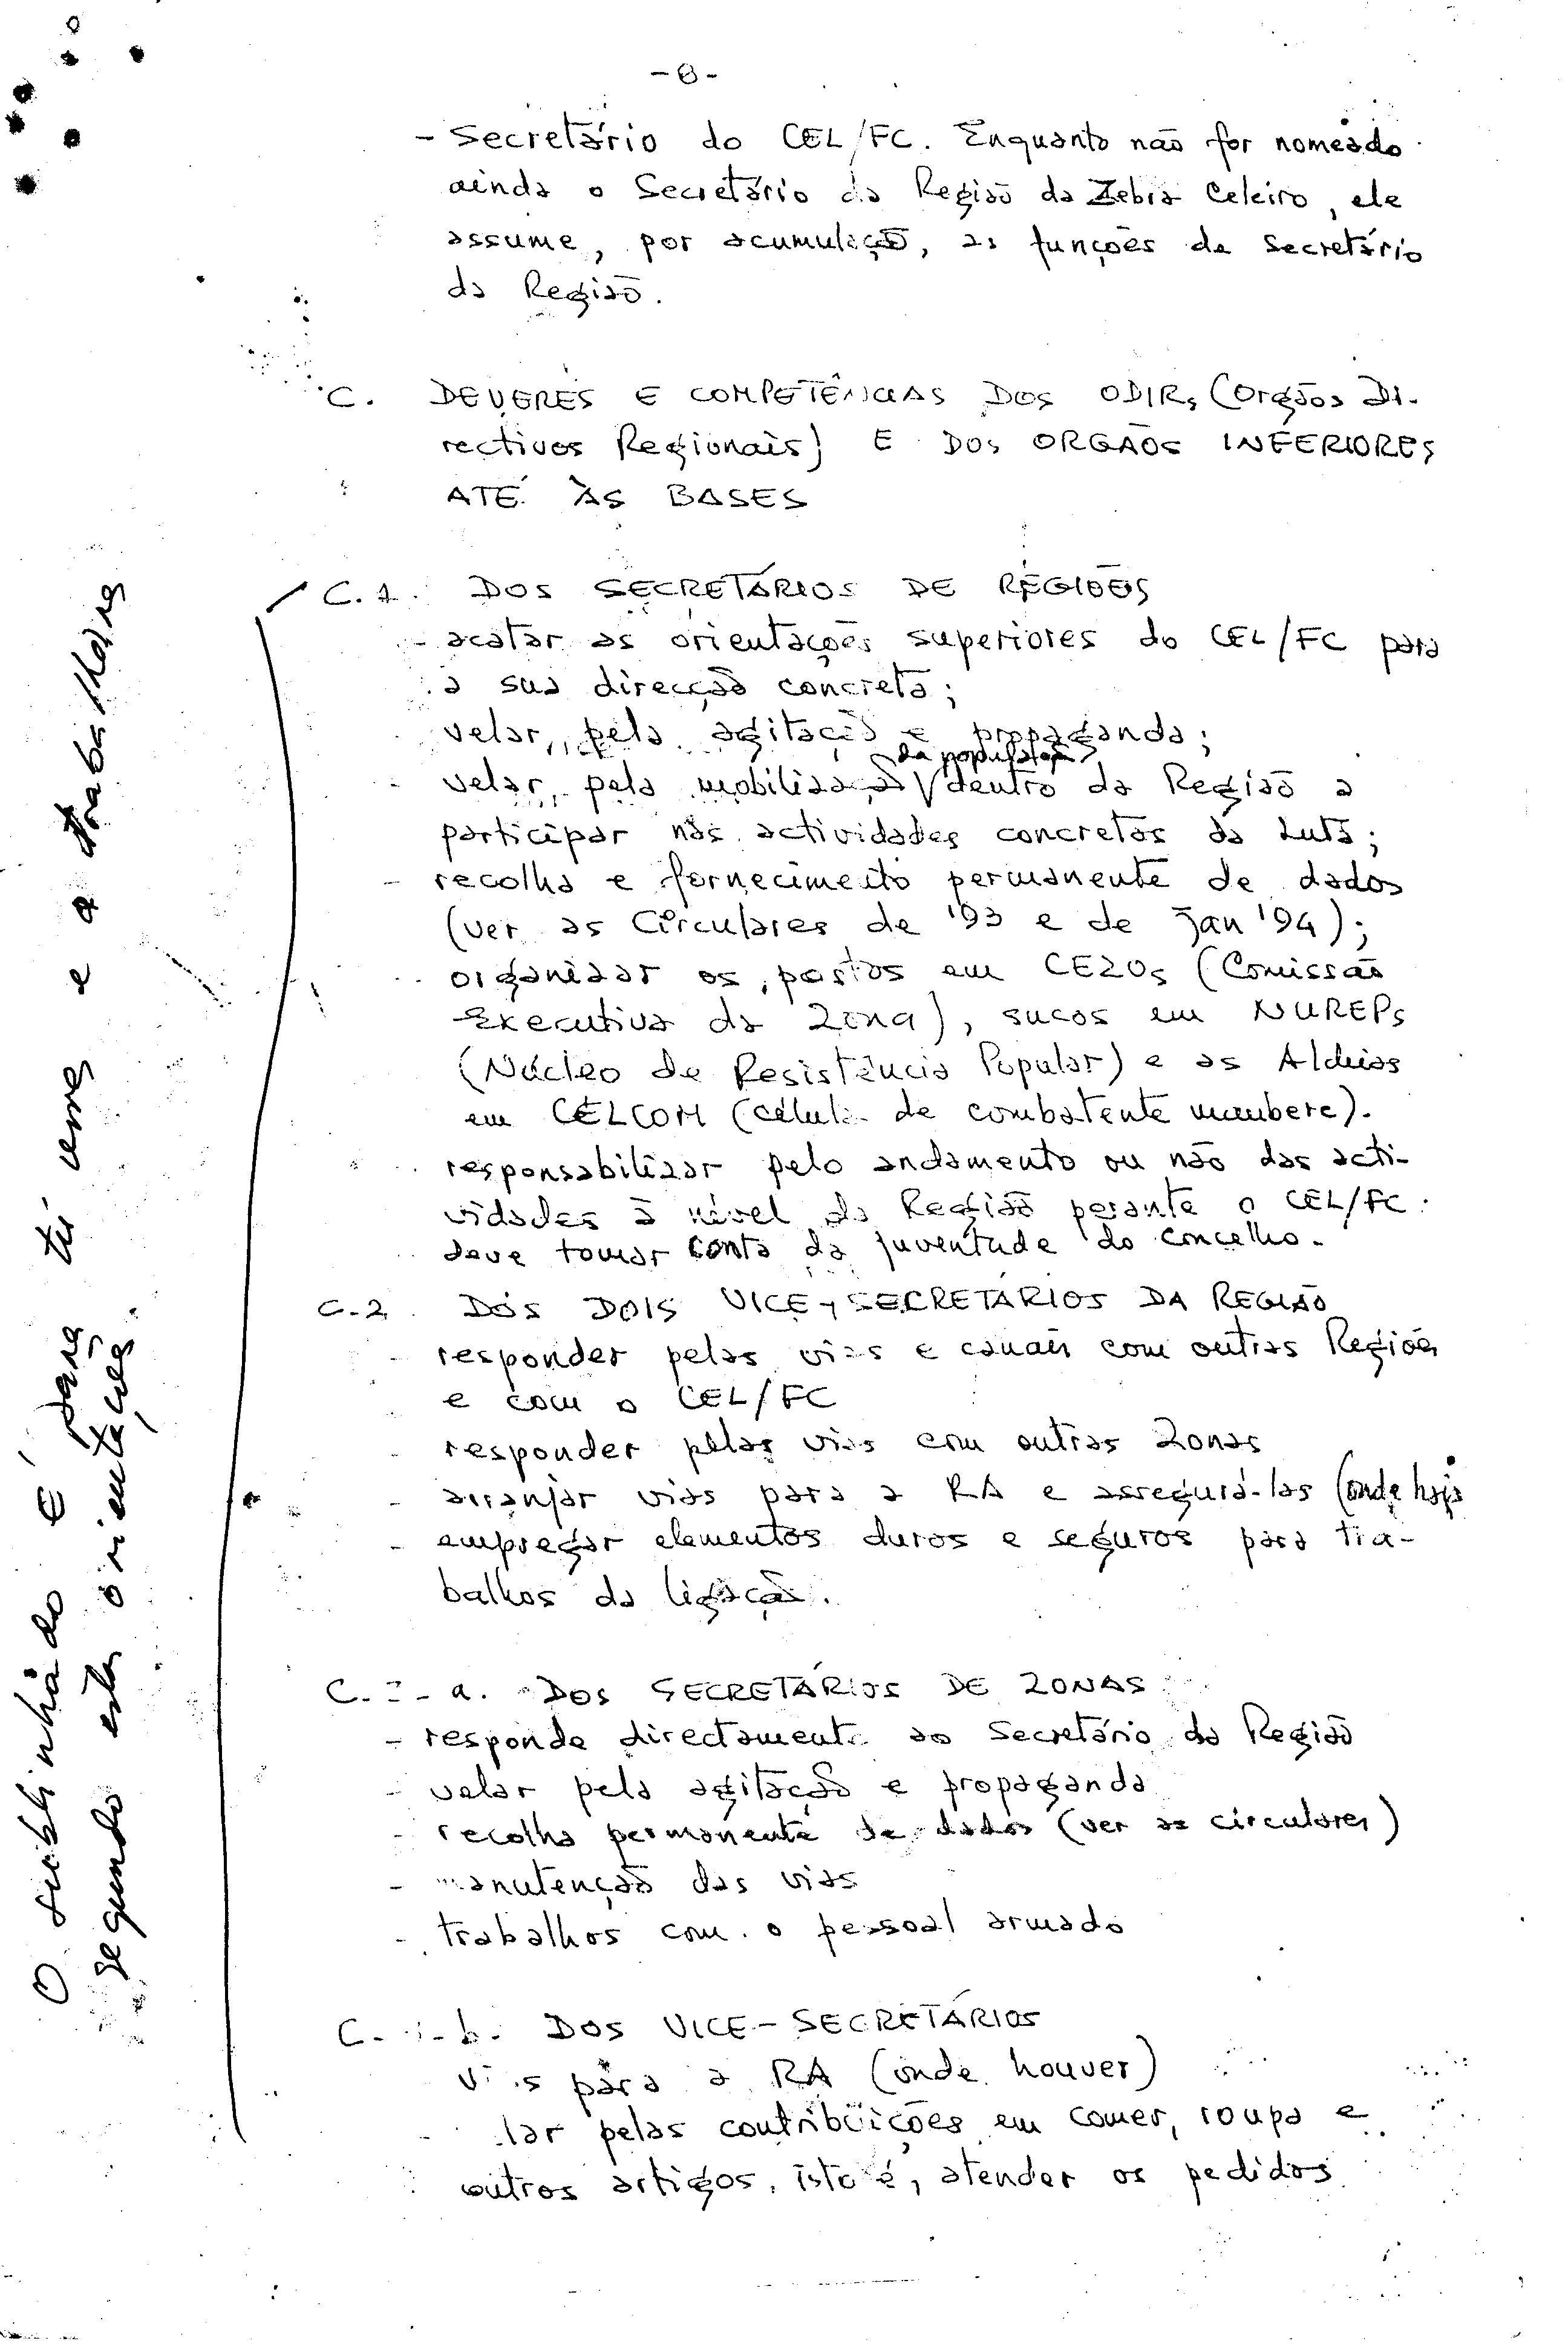 -6-
- Secretário do CEL/FC. Enquanto não for nomeado
ainda o Secretário da Região da Zebra Celeiro, ele
assume, por acumulação, as funções de Secretário
da Região.
C. DEVERES E COMPETÊNCIAS DOS ODIRs (Orgãos Di-
rectivos Regionais) E DOS ORGÃOS INFERIORES
ATÉ ÀS BASES
C.1. DOS SECRETÁRIOS DE REGIÕES
- acatar as orientações superiores do CEL/FC para
a sua direcção concreta;
velar, pela agitação e propaganda;
- velar, pela mobilização da população dentro da Região a
participar nas actividades concretas da Luta;
- recolha e fornecimento permanente de dados
(ver as Circulares de '93 e de Jan '94);
- organizar os postos em CEZOs (Comissão
Executiva da Zona), sucos em NUREPs
(Núcleo de Resistência Popular) e as Aldeias
em CELCOM (célula de combatente maubere).
- responsabilizar pelo andamento ou não das acti-
vidades à nível da Região perante o CEL/FC.
- deve tomar conta da juventude do concelho.
C.2 DOS DOIS VICE-SECRETÁRIOS DA REGIÃO
- responder pelas vias e canais com outras Regiões
e com o CEL/FC
- responder pelas vias com outras Zonas
- arranjar vias para a RA e assegurá-las (onde haja
- empregar elementos duros e seguros para tra-
balhos da ligação.
C. - a. DOS SECRETÁRIOS DE ZONAS
- responde directamente ao Secretário da Região
- velar pela agitação e propaganda
- recolha permanente de dados (ver as circulares)
- manutenção das vias
- trabalhos com o pessoal armado
C. - b. DOS VICE-SECRETÁRIOS
vias para a RA (onde houver)
- lar pelas contribuições em comer, roupa e
outros artigos, isto é, atender os pedidos
O sublinhado é para
segundo estas orientações.
e a trabalhares